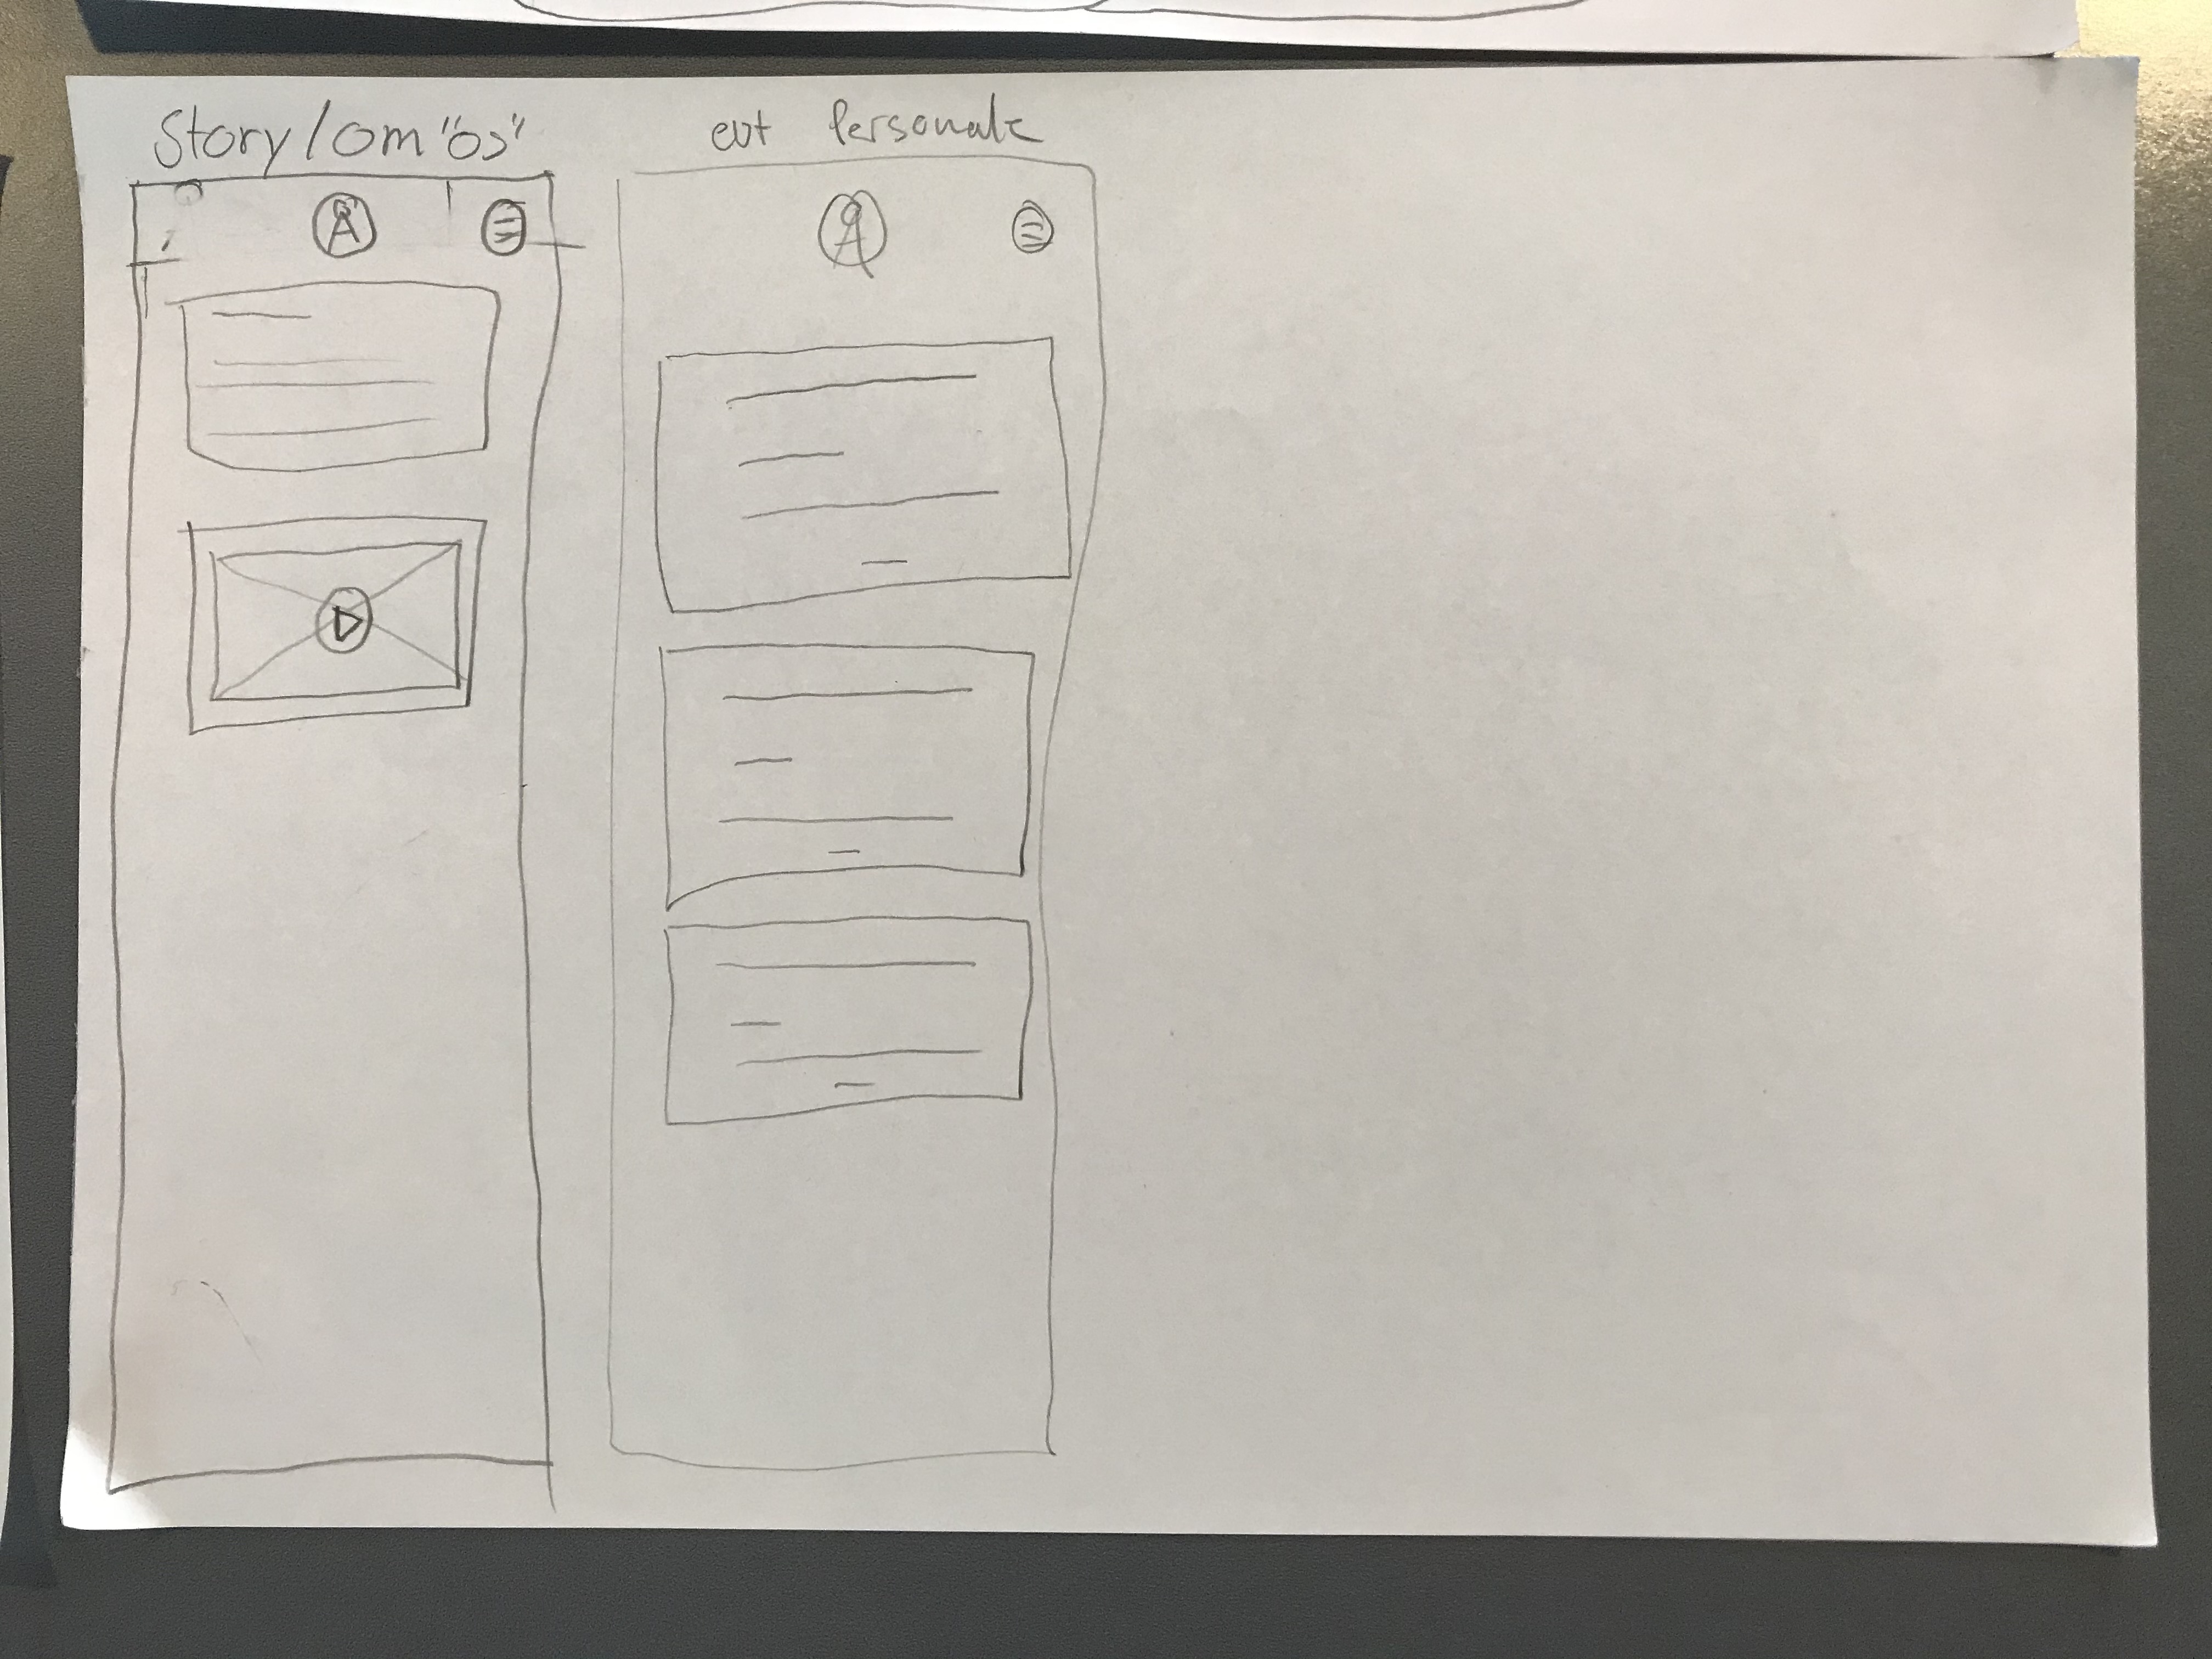 Story / om "os"
evt Personale
A